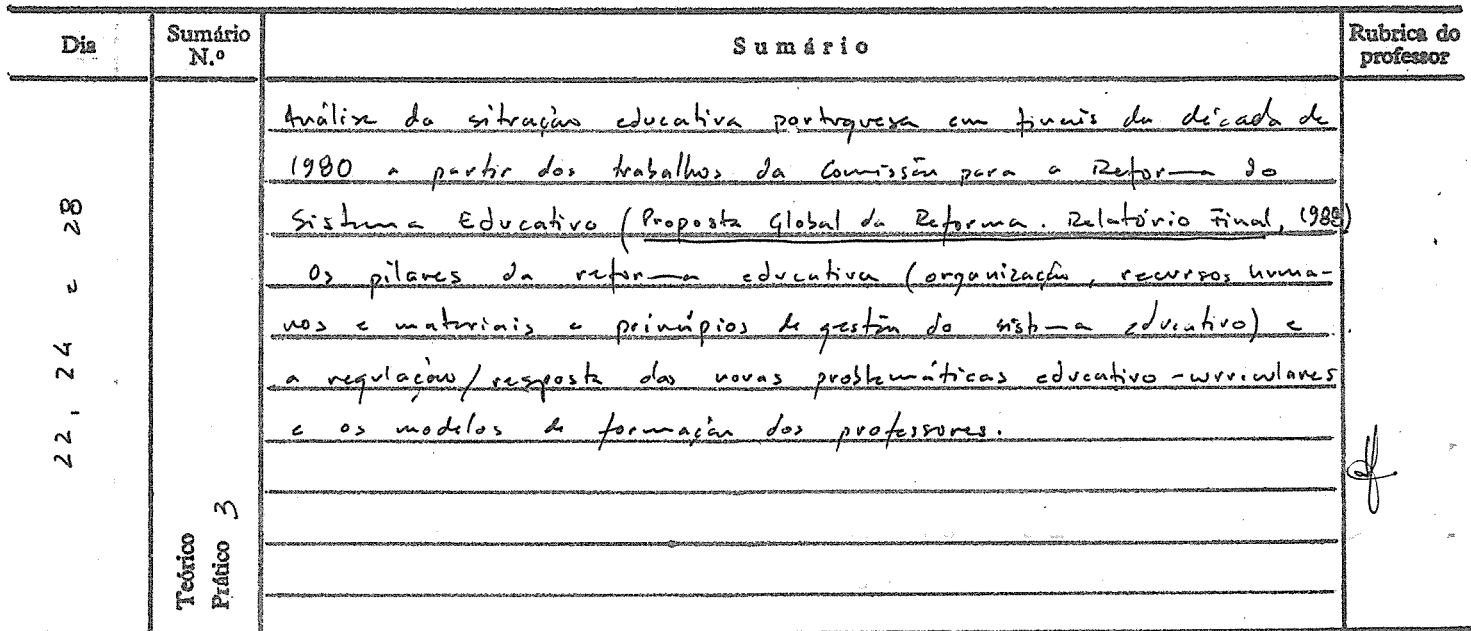 Dia
Sumário N.º
Sumário
Rubrica do professor
22, 24 e 28
Teórico
Prático 3
Análise da situação educativa portuguesa em finais da década de
1980 a partir dos trabalhos da Comissão para a Reforma do
Sistema Educativo (Proposta Global da Reforma. Relatório Final, 1988)
Os pilares da reforma educativa (organização, recursos huma-
nos e materiais e princípios de gestão do sistema educativo) e
a regulação/resposta das novas problemáticas educativo-curriculares
e os modelos de formação dos professores.